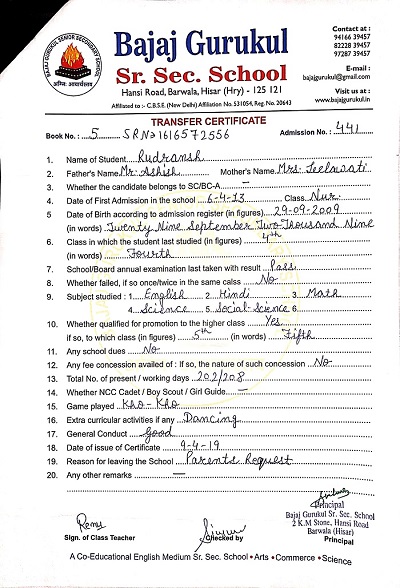 BAJAJ GURUKUL SENIOR SECONDARY SCHOOL
Bajaj Gurukul
Sr. Sec. School
Hansi Road, Barwala, Hisar (Hry) - 125 121
Affiliated to :- C.B.S.E. (New Delhi) Affiliation No. 531054, Reg. No. 20643
Contact at :
94166 39457
82228 39457
97287 39457
E-mail :
bajajgurukul@gmail.com
Visit us at :
www.bajajgurukul.in
TRANSFER CERTIFICATE
Book No. : 5 SRN 1616572556 Admission No. : 441
1. Name of Student Rudransh
2. Father's Name Mr. Ashish Mother's Name Mrs. Leelawati
3. Whether the candidate belongs to SC/BC-A —
4. Date of First Admission in the school 6-4-13 Class Nur.
5 Date of Birth according to admission register (in figures) 29-09-2009
(in words) Twenty Nine September Two Thousand Nine
6. Class in which the student last studied (in figures) 4th
(in words) Fourth
7. School/Board annual examination last taken with result Pass
8. Whether failed, if so once/twice in the same calss No
9. Subject studied : 1 English 2 Hindi 3 Math
4 Science 5 Social-Science 6
10. Whether qualified for promotion to the higher class Yes
if so, to which class (in figures) 5th (in words) Fifth
11. Any school dues No
12. Any fee concession availed of : If so, the nature of such concession No
13. Total No. of present / working days 202/208
14. Whether NCC Cadet / Boy Scout / Girl Guide —
15. Game played Kho-Kho
16. Extra curricular activities if any Dancing
17. General Conduct Good
18. Date of issue of Certificate 9-4-19
19. Reason for leaving the School Parents Request
20. Any other remarks —
Principal
Bajaj Gurukul Sr. Sec. School
2 K.M Stone, Hansi Road
Barwala (Hisar)
Sign. of Class Teacher Checked by Principal
A Co-Educational English Medium Sr. Sec. School • Arts • Commerce • Science